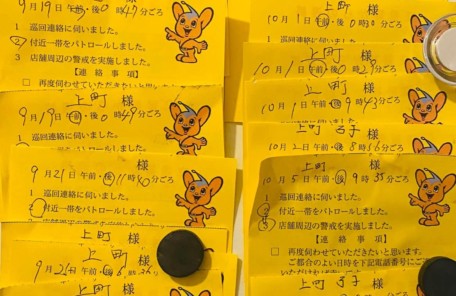 9月19日午前・後0時47分ごろ
1 巡回連絡に伺いました。
2 付近一帯をパトロールしました。
3 店舗周辺の警戒を実施しました。
【連絡事項】
□ 再度伺わせていただきたいと思います。
上町 様
9月19日午前・後0時49分ごろ
1 巡回連絡に伺いました。
付近一帯をパトロールしました。
様
9月21日午前・後11時40分ごろ
1 巡回連絡に伺いました。
2 付近一帯をパトロールしました。
上町 様
上町 様
9月25日午前・後
10月1日午前・後0時30分ごろ
1 巡回連絡に伺いました。
上町 様
10月1日午前・後0時29分ごろ
上町 様
10月1日午前・後9時43分ごろ
上町 様
10月2日午前・後8時56分ごろ
様
10月5日午前・後9時35分ごろ
1 巡回連絡に伺いました。
2 付近一帯をパトロールしました。
3 店舗周辺の警戒を実施しました。
【連絡事項】
□ 再度伺わせていただきたいと思います。
ご都合のよい日時を下記電話番号にご
上町 様